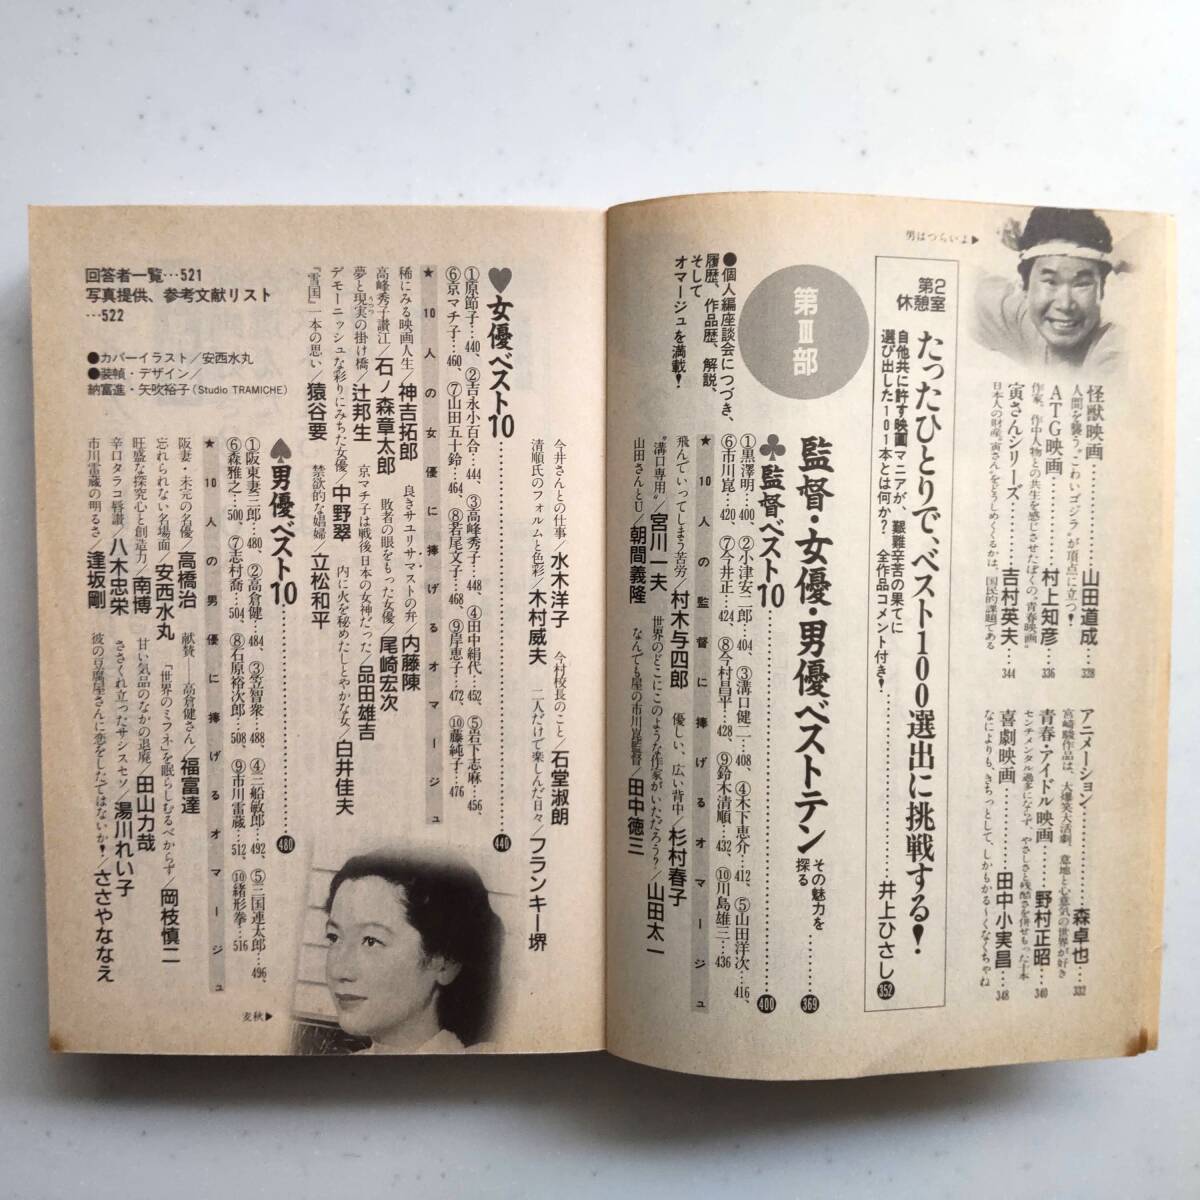 男はつらいよ▶
怪獣映画…………山田道成…328
人間を襲う“こわいゴジラ”が頂点に立つ!
ATG映画…………村上知彦…336
作家、作中人物との共生を感じさせたぼくの“青春映画”
寅さんシリーズ…………吉村英夫…344
日本人の財産“寅さん”をどうしめくくるかは、国民的課題である
アニメーション…………森卓也…332
宮崎駿作品は、大爆笑大活劇、意地と心意気の世界が好き
青春・アイドル映画……野村正昭…340
センチメンタル過多にならず、やさしさと残酷さを併せもった十本
喜劇映画…………田中小実昌…348
なによりも、きちっとして、しかもかる〜くなくちゃね
第2休憩室
たったひとりで、ベスト100選出に挑戦する!…………井上ひさし 352
自他共に許す映画マニアが、艱難辛苦の果てに
選び出した101本とは何か? 全作品コメント付き!
第Ⅲ部
監督・女優・男優ベストテン その魅力を探る……369
●個人編座談会につづき、
履歴、作品歴、解説、
そして
オマージュを満載!
♣監督ベスト10…………400
①黒澤明…400、②小津安二郎…404、③溝口健二…408、④木下恵介…412、⑤山田洋次…416、
⑥市川崑…420、⑦今井正…424、⑧今村昌平…428、⑨鈴木清順…432、⑩川島雄三…436
★10人の監督に捧げるオマージュ
飛んでいってしまう苦労/村木与四郎 優しい、広い背中/杉村春子
“溝口専用”/宮川一夫 世界のどこにこのような作家がいただろう?/山田太一
山田さんとU/朝間義隆 なんでも屋の市川崑監督/田中徳三
今井さんとの仕事/水木洋子 今村校長のこと/石堂淑朗
清順氏のフォルムと色彩/木村威夫 二人だけで楽しんだ日々/フランキー堺
♥女優ベスト10…………440
①原節子…440、②吉永小百合…444、③高峰秀子…448、④田中絹代…452、⑤岩下志麻…456、
⑥京マチ子…460、⑦山田五十鈴…464、⑧若尾文子…468、⑨岸恵子…472、⑩藤純子…476
★10人の女優に捧げるオマージュ
稀にみる映画人生/神吉拓郎 良きサユリサマストの弁/内藤陳
高峰秀子讃江/石ノ森章太郎 敗者の眼をもった女優/尾崎宏次
夢と現実の掛け橋/辻邦生 京マチ子は戦後日本の女神だった/品田雄吉
デモーニッシュな彩りにみちた女優/中野翠 内に火を秘めたしとやかな女/白井佳夫
『雪国』一本の思い/猿谷要 禁欲的な娼婦/立松和平
♠男優ベスト10…………480
①阪東妻三郎…480、②高倉健…484、③笠智衆…488、④三船敏郎…492、⑤三国連太郎…496、
⑥森雅之…500、⑦志村喬…504、⑧石原裕次郎…508、⑨市川雷蔵…512、⑩緒形拳…516
★10人の男優に捧げるオマージュ
阪妻・未完の名優/高橋治 献賛――高倉健さん/福富達
忘れられない名場面/安西水丸 「世界のミフネ」を眠らしむるべからず/岡枝慎二
旺盛な探究心と創造力/南博 甘い気品のなかの退廃/田山力哉
辛口タラコ唇讃/八木忠栄 ささくれ立ったサシスセソ/湯川れい子
市川雷蔵の明るさ/逢坂剛 彼の豆腐屋さんに恋をしたではないか!/ささやななえ
回答者一覧…521
写真提供、参考文献リスト
…522
●カバーイラスト/安西水丸
●装幀・デザイン/
納富進・矢吹裕子(Studio TRAMICHE)
麦秋▶